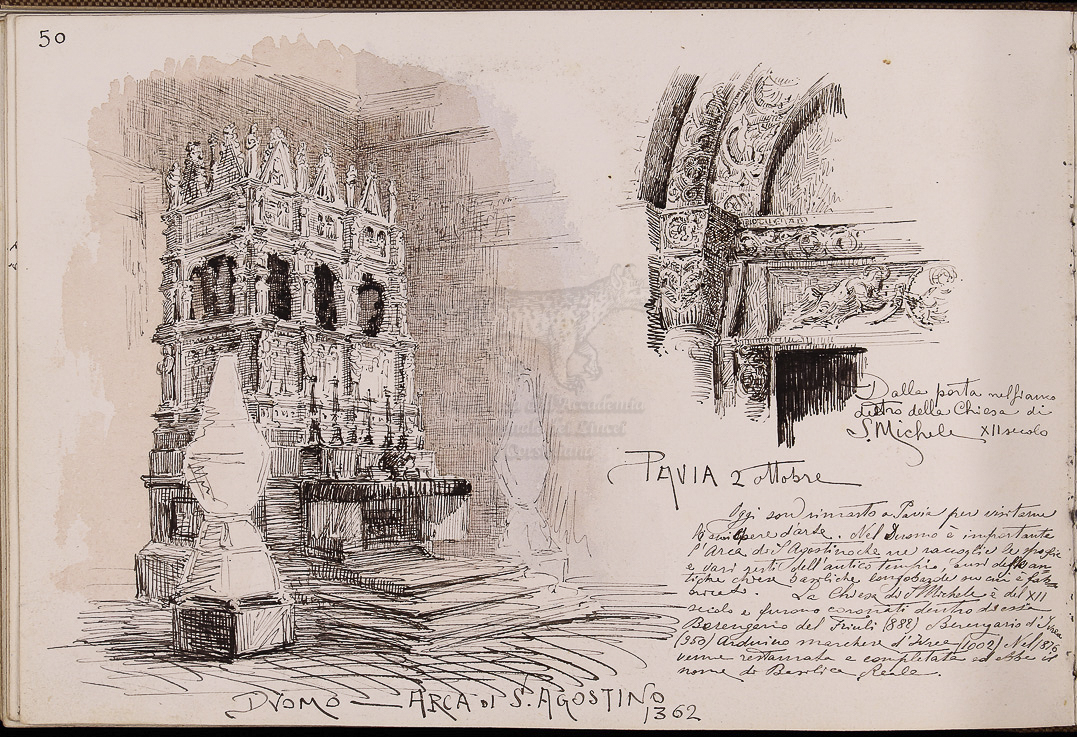 50
Dalla porta nel fianco
dietro della Chiesa di
S. Michele XII secolo
PAVIA 2 ottobre
Oggi son rimasto a Pavia per visitarne
le opere d'arte. Nel Duomo è importante
l'Arca di S. Agostino che ne raccoglie le
e vari resti dell'antico tempio,
tiche chiese basiliche longobarde su cui è fab
bricato. La Chiesa di S. Michele è del XII
secolo e furono coronati dentro di essa
Berengario del Friuli (888) Berengario d'Ivrea
(950) Arduino marchese d'Ivrea (1002) Nel 1876
venne restaurata e completata ed ebbe il
nome di Basilica Reale.
DVOMO — ARCA DI S. AGOSTINO
1362